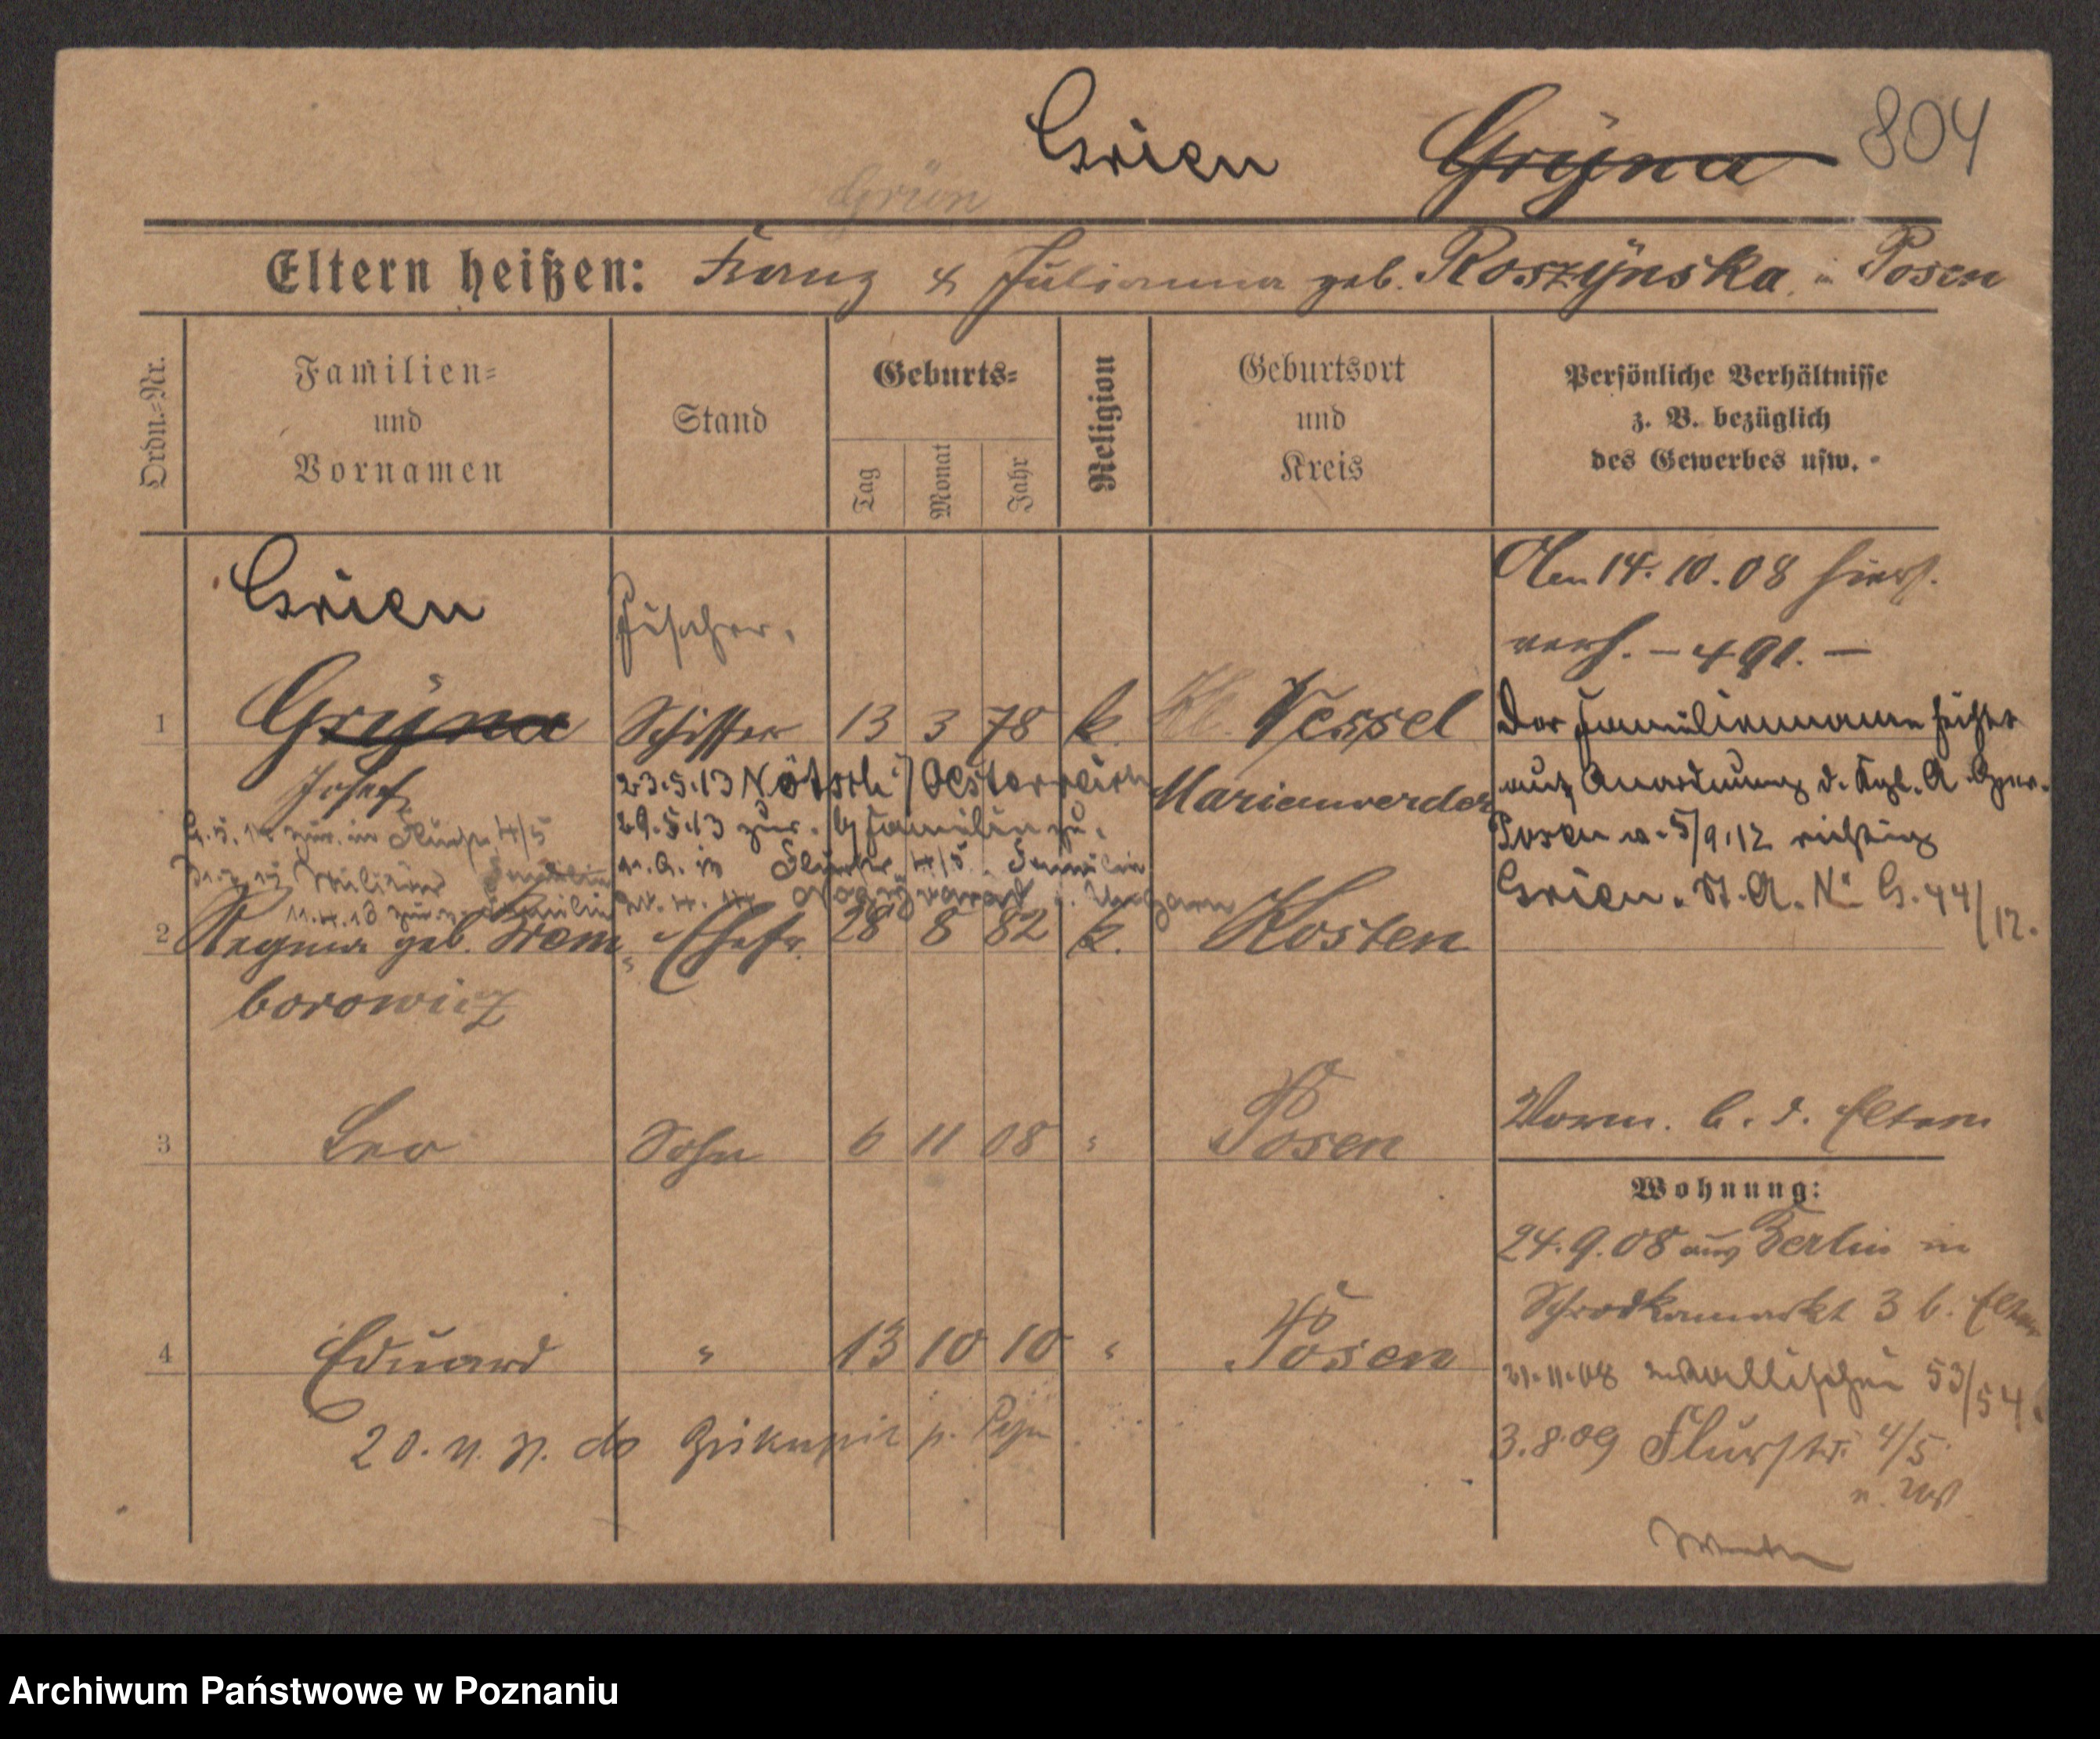 Grien Gryna 804
Grün
Eltern heißen: Franz & Julianna geb. Roszÿnska in Posen
Ordn.-Nr.
Familien- und Vornamen
Stand
Geburts-
Tag
Monat
Jahr
Religion
Geburtsort und Kreis
Persönliche Verhältnisse
z. B. bezüglich
des Gewerbes usw.
Grien
Fischer.
1 Gryna Schiffer 13 3 78 k. Kl. Wessel
Josef
Marienwerder
23.5.13 Nötsch / Oesterreich
29.5.13 zur. Familie
in Flurstr. 4/5 Familie
Ungarn
2 Regina geb. Drem- Ehefr. 28 8 82 k. Kosten
borowicz
3 Leo Sohn 6 11 08 " Posen
4 Eduard " 13 10 10 " Posen
20. do Biskupic p.
Am 14.10.08 hiers.
verh. – 491. –
Der Familienname heißt
auf Anordnung d. Kgl. A
Posen v. 5/9.12 richtig
Grien. St. A. No G. 44/12.
Vorm. b. d. Eltern
Wohnung:
24.9.08 aus Berlin in
Schrodkamarkt 3 b. Eltern
21.11.08 Wallischei 53/54
3.8.09 Flurstr. 4/5
Archiwum Państwowe w Poznaniu